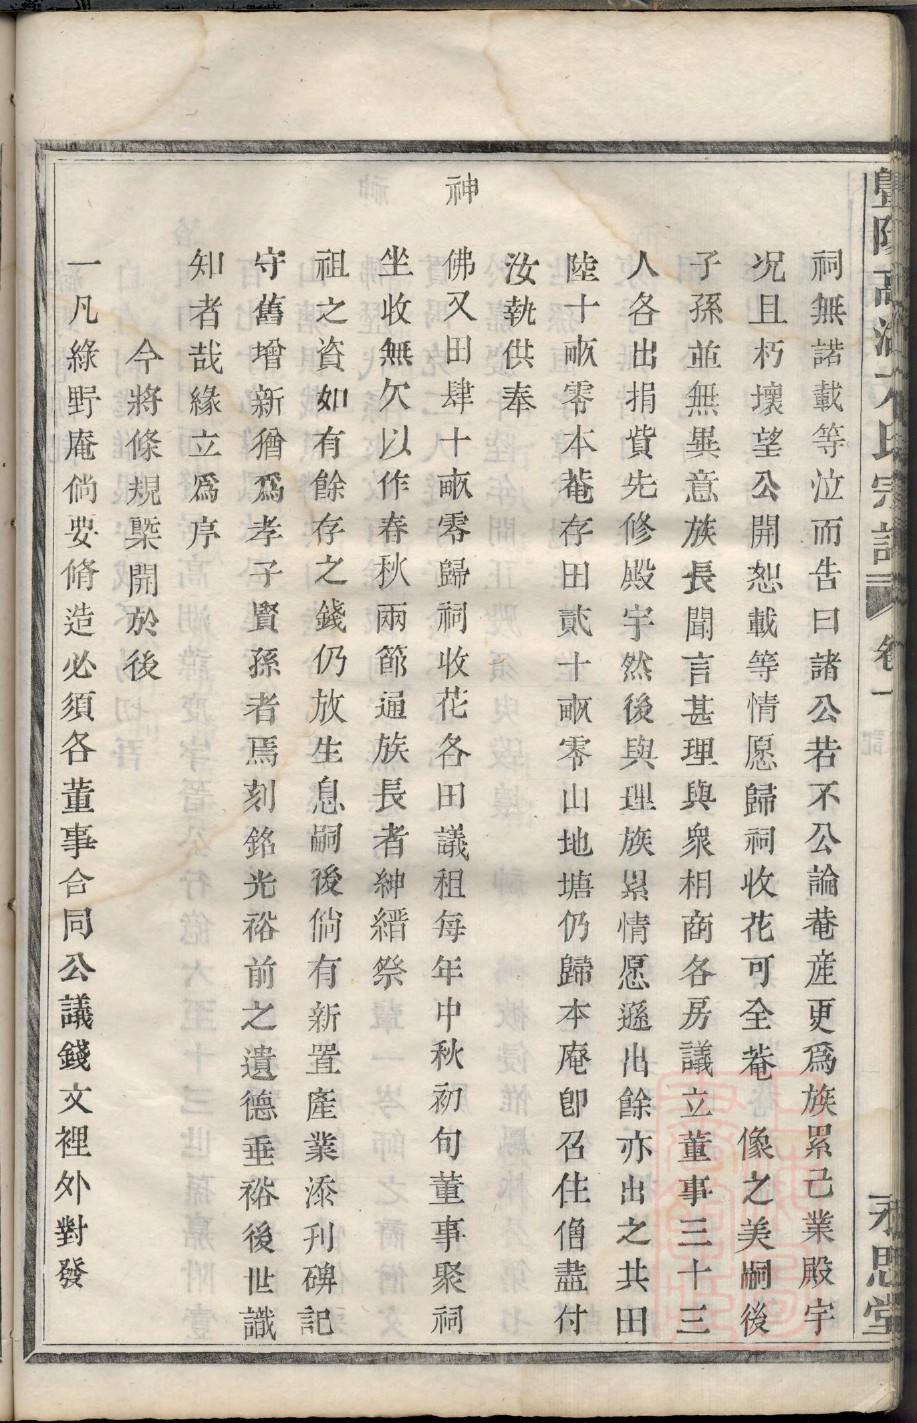 祠無諾載等泣而告曰諸公若不公論菴産更爲族累己業殿宇
况且朽壞望公開恕載等情愿歸祠收花可全菴 像之美嗣後
子孫並無異意族長聞言甚理與衆相商各房議立董事三十三
人各出捐貲先修殿宇然後與理族累情愿遜出餘亦出之共田
陸十畝零本菴存田貳十畝零山地塘仍歸本庵卽召住僧盡付
汝執供奉
神
佛又田肆十畝零歸祠收花各田議租每年中秋初旬董事聚祠
坐收無欠以作春秋兩節通族長者紳縉祭
祖之資如有餘存之錢仍放生息嗣後倘有新置產業添刋碑記
守舊增新猶爲孝子賢孫者焉刻銘光裕前之遺德垂裕後世識
知者哉緣立爲序
今將條規槩開於後
一凡綠野庵倘要脩造必須各董事合同公議錢文裡外對發
氏宗譜 卷一
永思堂